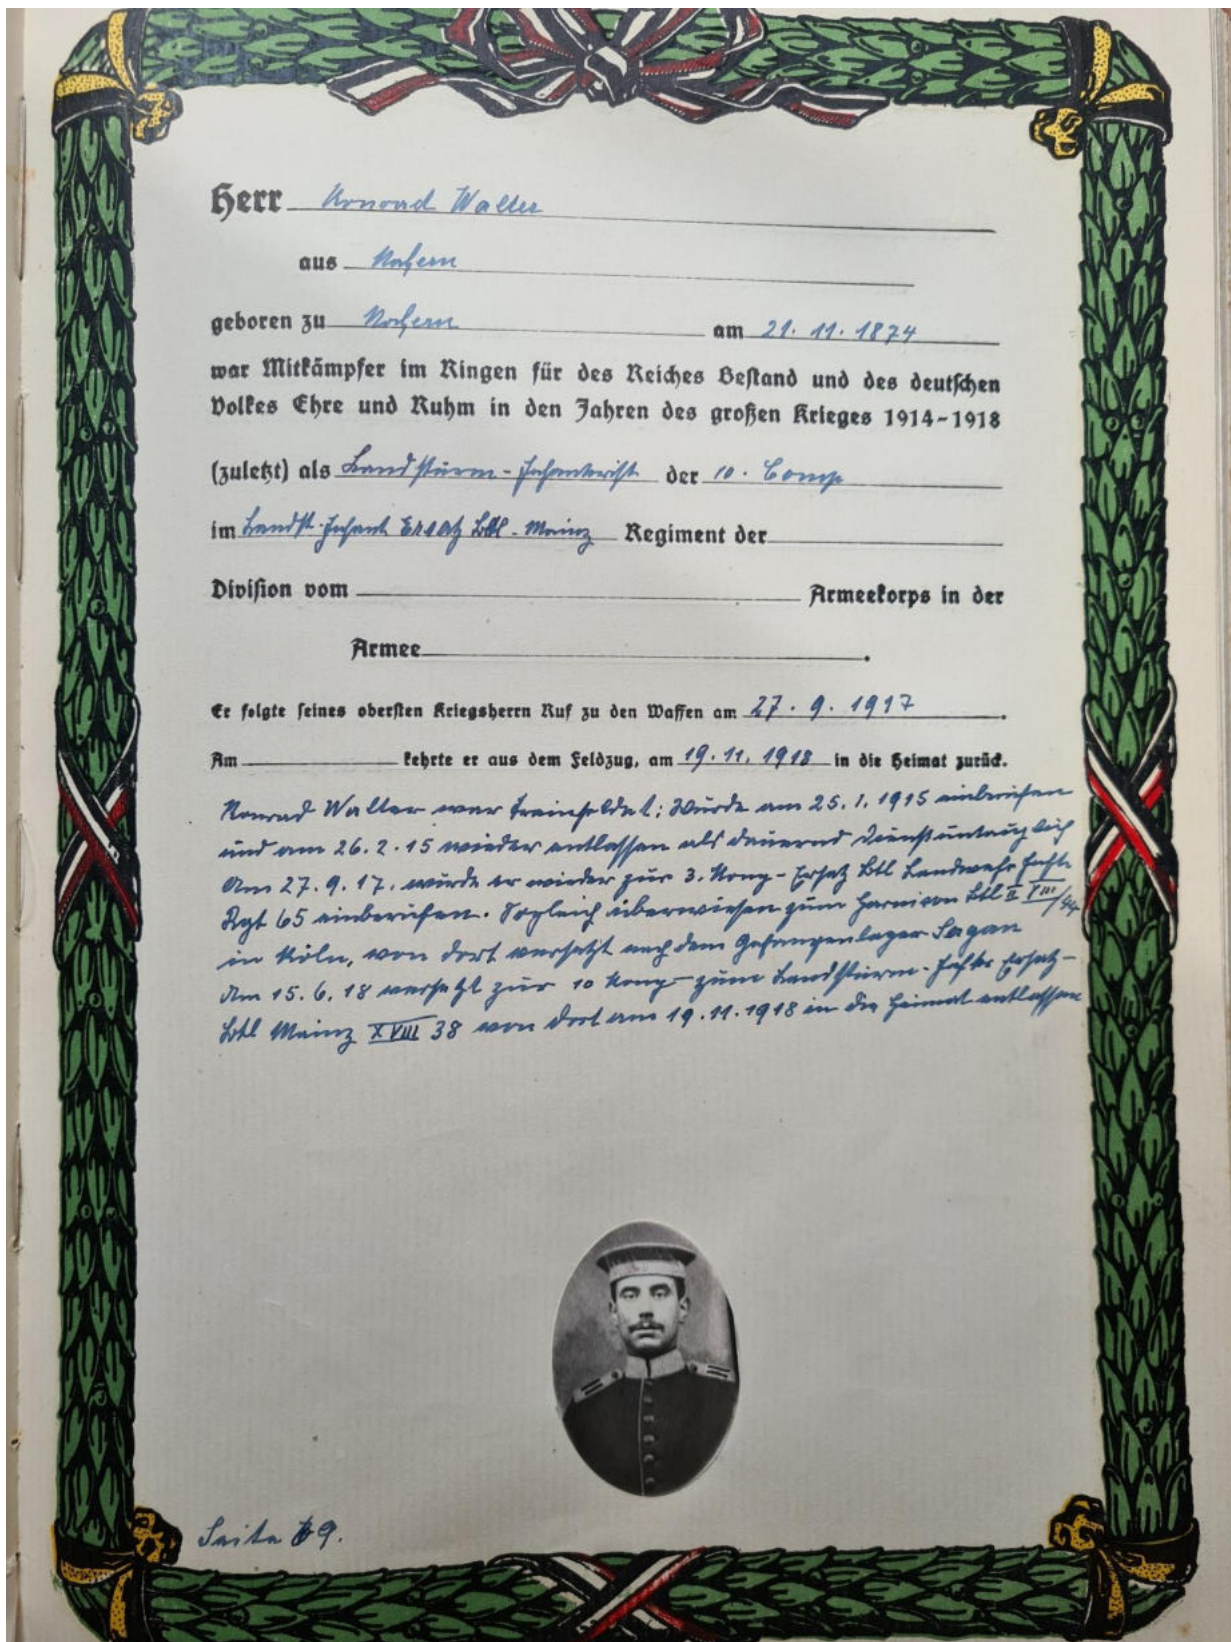 Herr Konrad Walter
aus Kochern
geboren zu Kochern am 21. 11. 1874
war Mitkämpfer im Ringen für des Reiches Bestand und des deutschen
Volkes Ehre und Ruhm in den Jahren des großen Krieges 1914-1918
(zuletzt) als Landsturm-Infanterist der 10. Comp
im Landst. Infant Ersatz Btl. Mainz Regiment der
Division vom Armeekorps in der
Armee .
Er folgte seines obersten Kriegsherrn Ruf zu den Waffen am 27. 9. 1917 .
Am kehrte er aus dem Feldzug, am 19. 11. 1918 in die Heimat zurück.
Konrad Walter war Trainsoldat; Wurde am 25. 1. 1915 einberufen
und am 26. 2. 15 wieder entlassen als dauernd dienstuntauglich
Am 27. 9. 17. wurde er wieder zur 3. Komp- Ersatz Btl Landwehr Inftr.
Rgt 65 einberufen. Sogleich überwiesen zum Garnison Btl II VIII/44
in Köln, von dort versetzt nach dem Gefangenlager Sagan
Am 15. 6. 18 versetzt zur 10 Komp- zum Landsturm-Inftr Ersatz-
Btl Mainz XVIII 38 von dort am 19. 11. 1918 in die Heimat entlassen
Seite 69.